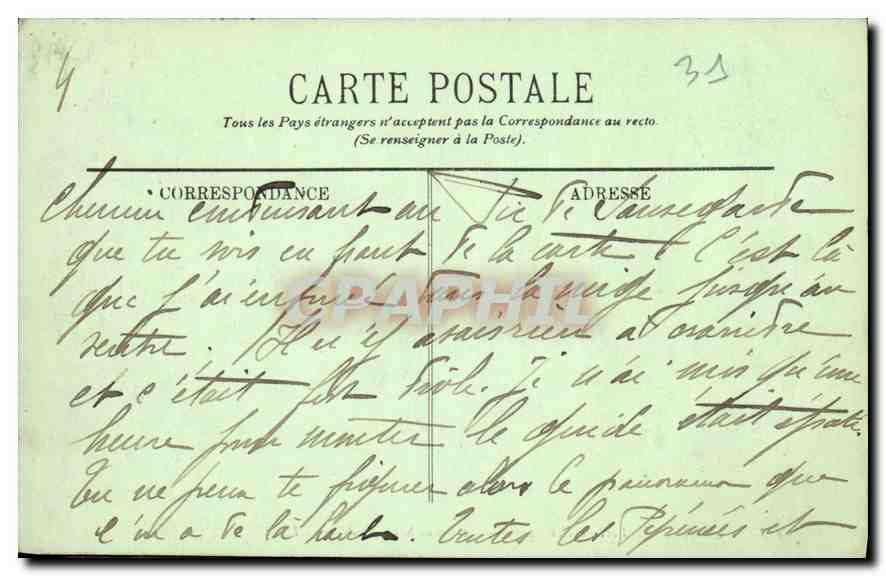 4
31
CARTE POSTALE
Tous les Pays étrangers n'acceptent pas la Correspondance au recto.
(Se renseigner à la Poste).
CORRESPONDANCE
ADRESSE
chemin conduisant au Pic de Sauvegarde
que tu vois en haut de la carte. C'est là
que j'ai enfoncé dans la neige jusqu'au
ventre. Il n'y avait rien à craindre
et c'était fort drôle. Je n'ai mis qu'une
heure pour monter le guide était épaté.
Tu ne peux te figurer alors le panorama que
l'on a de là haut. Toutes les Pyrénées et
CPAPHIL